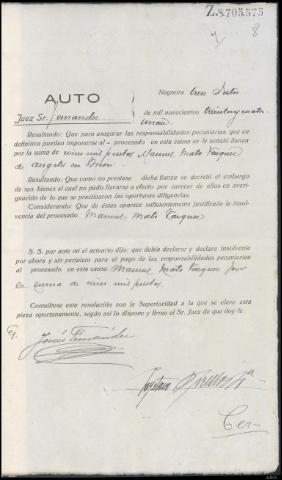 Z.8.705.575
8
AUTO
Juez Sr. Fernandez
Negreira tres Julio
de mil novecientos treinta y cuatro
Resultando: Que para asegurar las responsabilidades pecuniarias que en
definitiva puedan imponerse al procesado en esta causa se le señaló fianza
por la suma de cinco mil pesetas Manuel Mato Vazquez
de en
Resultando: Que como no prestase dicha fianza se decretó el embargo
de sus bienes el cual no pudo llevarse a efecto por carecer de ellos en averi-
guación de lo que se practicaron las oportunas diligencias.
Considerando: Que de éstas aparece suficientemente justificada la insol-
vencia del procesado Manuel Mato Vazquez
S. S. por ante mi el actuario dijo: que debía declarar y declara insolvente
por ahora y sin perjuicio para el pago de las responsabilidades pecuniarias
al procesado en esta causa. Manuel Mato Vazquez por
la suma de cinco mil pesetas.
Consúltese esta resolución con la Superioridad a la que se eleve esta
pieza oportunamente, según así lo dispuso y firma el Sr. Juez de que doy fe.
Jesús Fernández